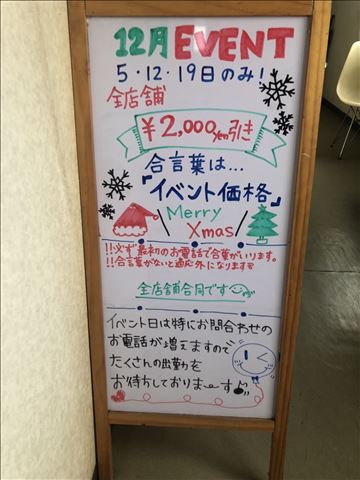 12月 EVENT
5・12・19日のみ!
全店舗
¥2,000/en引き
合言葉は…
「イベント価格」
Merry
Xmas
!!必ず最初のお電話で合言葉がいります。
!!合言葉がないと適応外になります
全店舗合同です
イベント日は特にお問合わせの
お電話が増えますので
たくさんの出勤を
お待ちしておりまーす♪